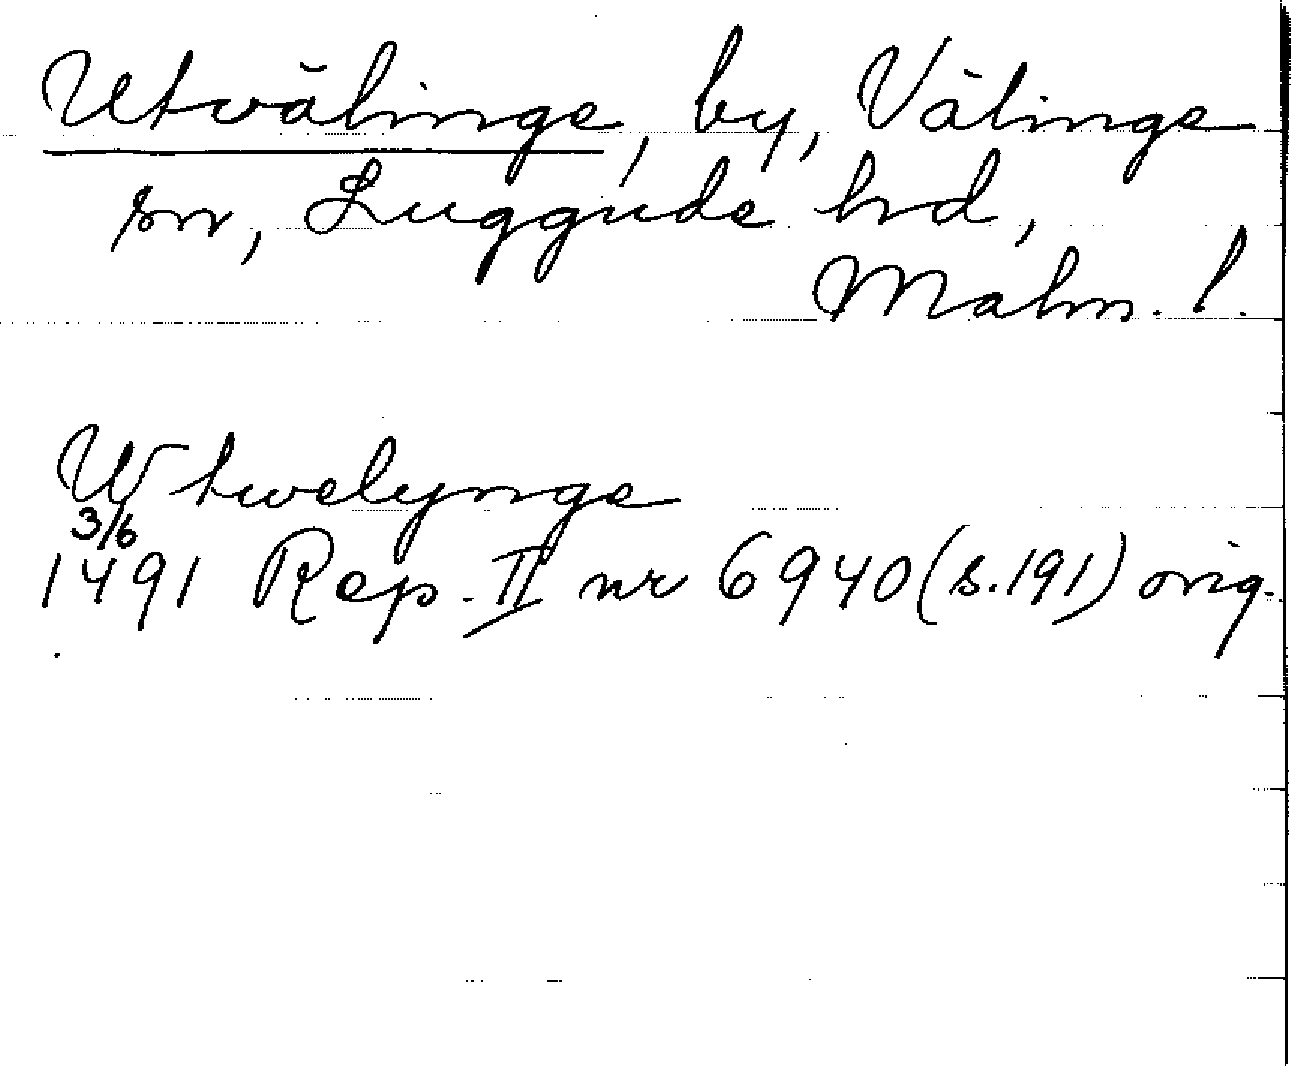 Utvälinge, by, Välinge
sn, Luggude hd,
Malm. l.
Wtwelynge
3/6
1491 Rep. II nr 6940 (s. 191) orig.